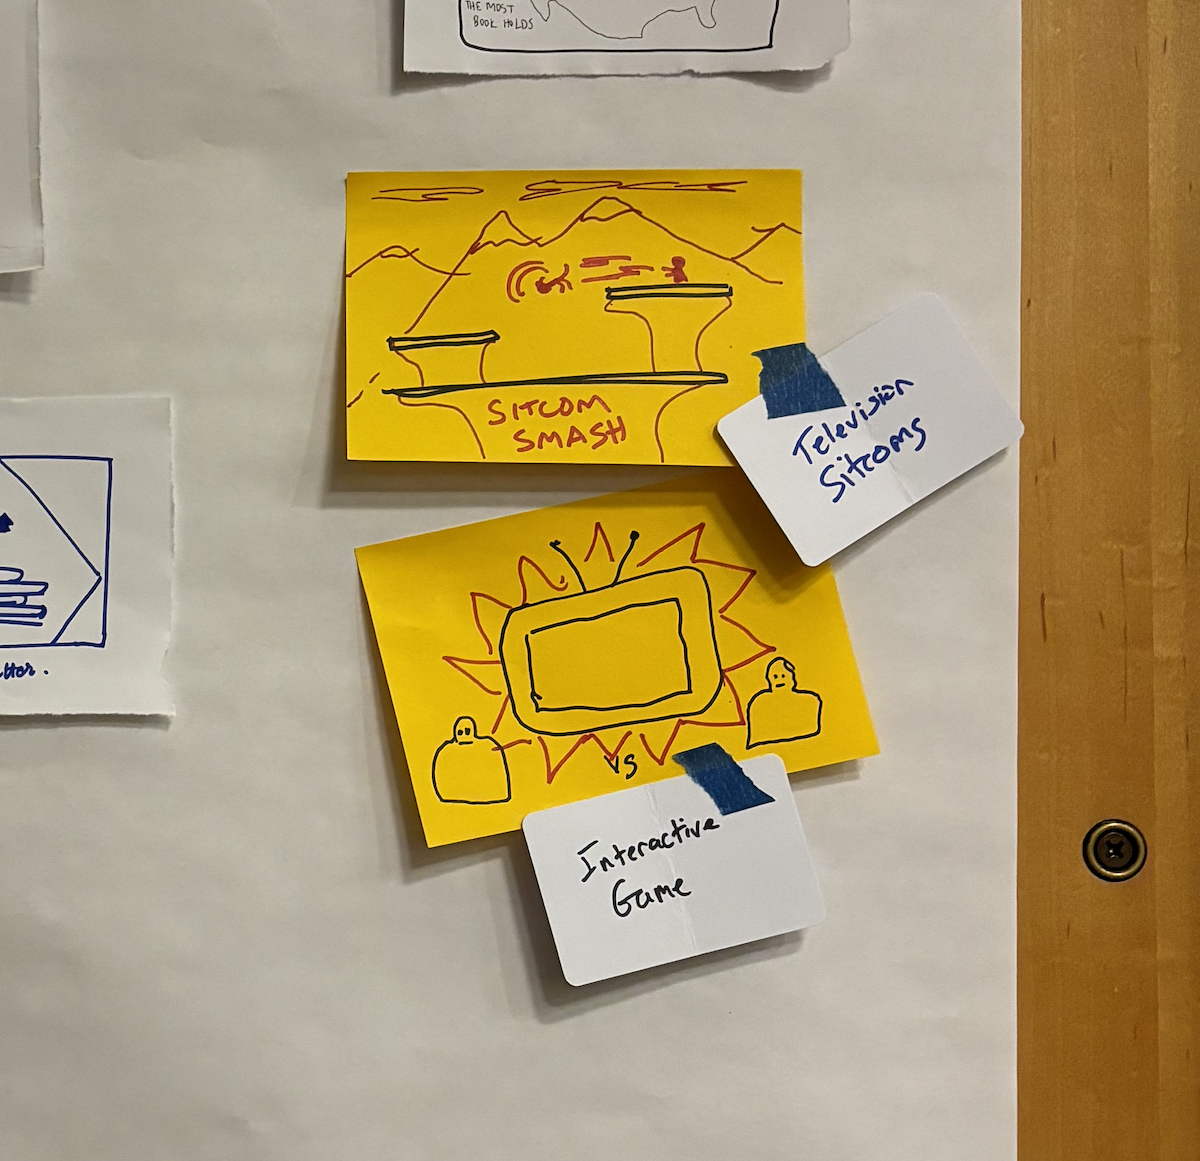 THE MOST
BOOK HOLDS
SITCOM
SMASH
Television
Sitcoms
VS
Interactive
Game